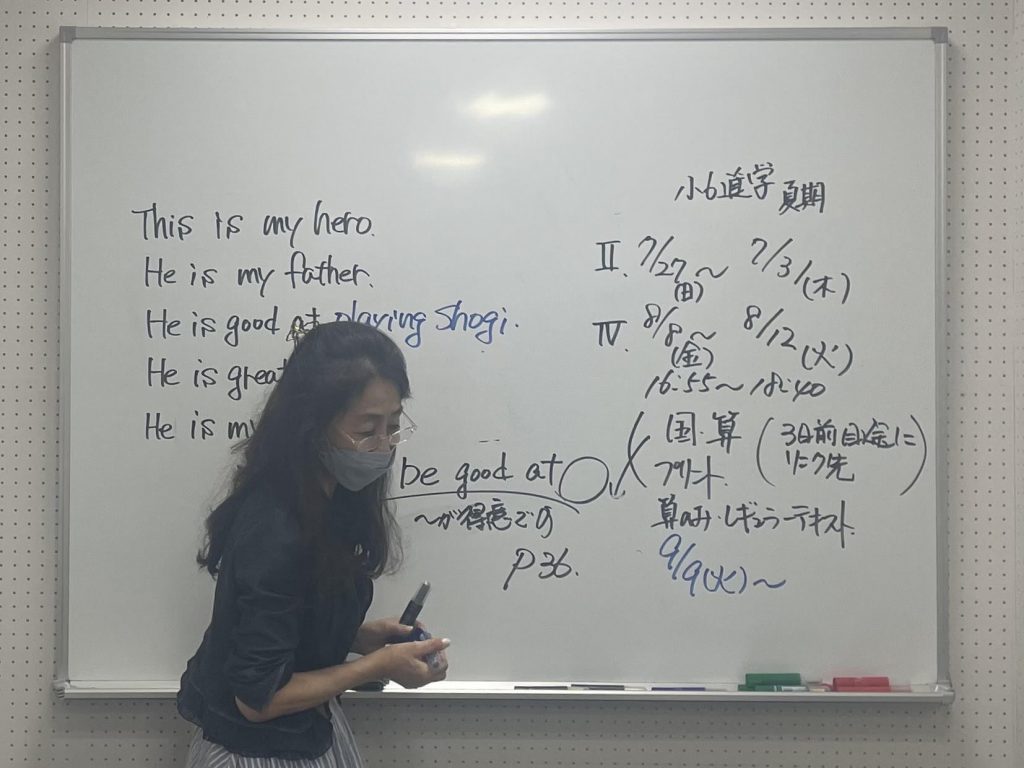 This is my hero.
He is my father.
He is good at playing shogi.
He is great
He is my
be good at
〜が得意です
P36.
小6 道学 夏期
II. 7/27(日)〜 7/31(木)
IV. 8/8(金)〜 8/12(火)
16:55〜18:40
国・算
プリント
(3日前
リニク先
算のみ・レギュラーテキスト
9/9(火)〜